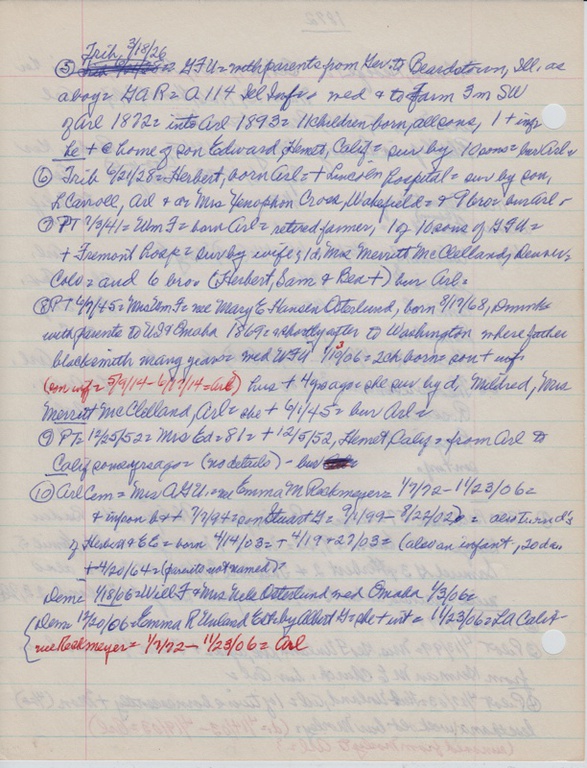 Trib 3/18/26
⑤ = GFU = with parents from Ger. to Beardstown, Ill. as
above = GAR = A 114 Ill Inf = med & to farm 3 m SW
of Arl 1872 = into Arl 1893 = 11 children born, all sons, 1 + inf =
he + @ home of son Edward, Hemet, Calif = sur by 10 sons = bur Arl =
⑥ Trib 6/21/28 = Herbert, born Arl = + Lincoln hospital = sur by son,
L Carroll, Arl & dr Mrs Xenophon Cross, Wakefield = & 9 bro = bur Arl =
⑦ PT 7/3/41 = Wm F = born Arl = retired farmer, 1 of 10 sons of GFU =
+ Fremont Hosp = sur by wife; 1 d, Mrs Merritt McClelland, Denver,
Colo = and 6 bro (Herbert, Sam & Ben +) bur Arl =
⑧ PT 6/7/45 = Mrs Wm F = nee Mary E Hansen Osterlund, born 8/17/68, Denmark
with parents to US & Omaha 1869 = shortly after to Washington where father
blacksmith many years = med WFU 1/3/06 = 2 ch born = son + inf
(son inf = 5/9/14 - 6/17/14 = Arl) hus + 4 yrs ago = she sur by d, Mildred, Mrs
Merritt McClelland, Arl = she + 6/1/45 = bur Arl =
⑨ PT = 12/25/52 = Mrs Ed = 81 = + 12/5/52, Hemet, Calif = from Arl to
Calif some yrs ago = (no details) - bur
⑩ Arl Cem = Mrs AGU = nee Emma M Reckmeyer = 1/7/72 - 11/23/06 =
+ inf son b & + 7/7/94 = son Stuart G = 9/2/99 - 8/22/02 = also twin d's
of Herbert & EE = born 4/14/03 = + 4/19 & 27/03 = (also an infant, 20 da
+ 4/20/64 = (parents not named) =
Demo 1/18/06 = Will F & Mrs Nelle Osterlund med Omaha 1/3/06 =
Demo 12/20/06 = Emma R Unland Est by Albert G = she + int = 11/23/06 = LA Calif -
nee Reckmeyer = 1/7/72 - 11/23/06 = Arl